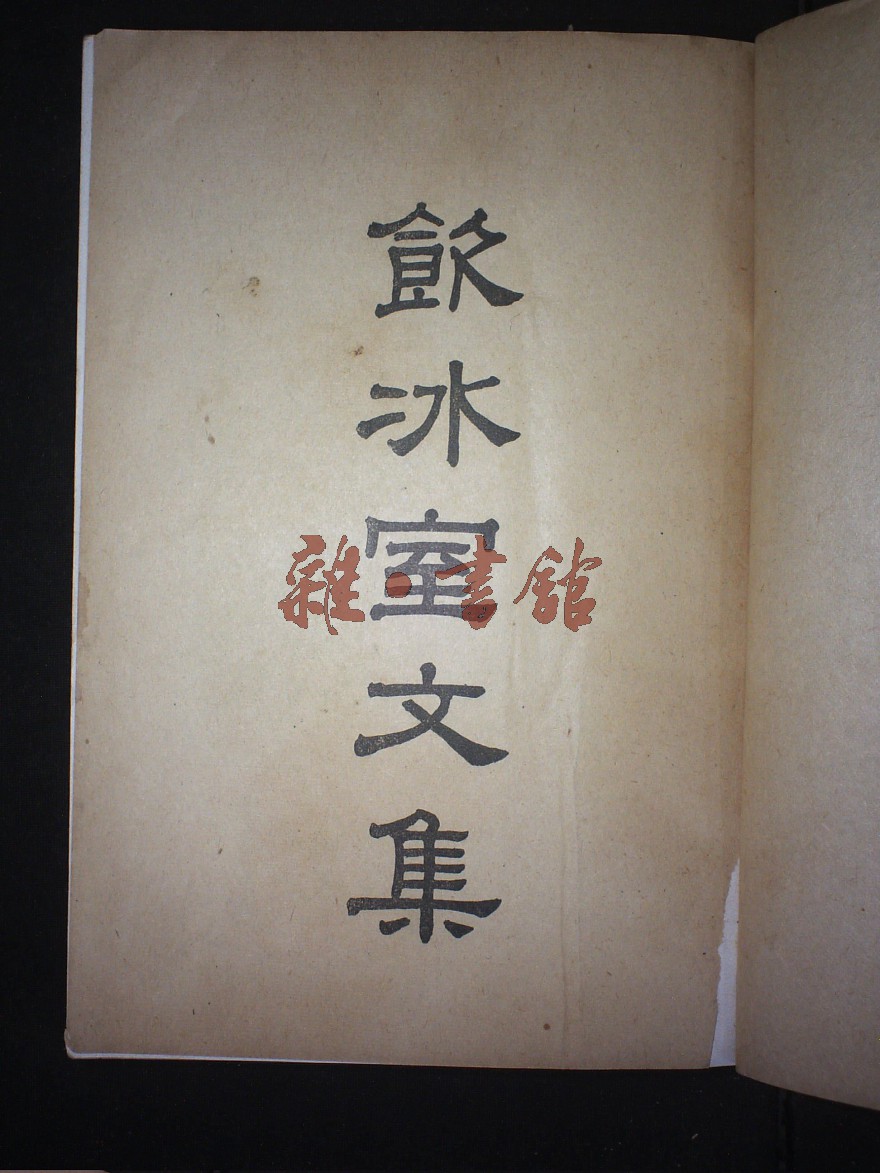 飲冰室文集
雜·書館